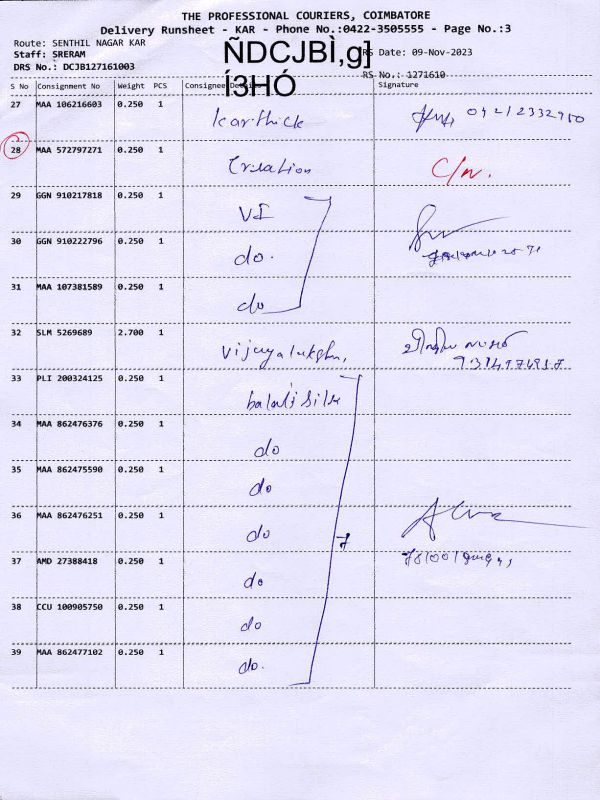 THE PROFESSIONAL COURIERS, COIMBATORE
Delivery Runsheet - KAR - Phone No.:0422-3505555 - Page No.:3
Route: SENTHIL NAGAR KAR
Staff: SRERAM RS Date: 09-Nov-2023
DRS No.: DCJB127161003 RS No.: 1271610
ÑDCJBÌ,g]
Í3HÓ
S No Consignment No Weight PCS Consignee Details Signature
27 MAA 106216603 0.250 1 karthick
28 MAA 572797271 0.250 1 Creation C/n.
29 GGN 910217818 0.250 1 VI
30 GGN 910222796 0.250 1 do.
31 MAA 107381589 0.250 1 do
32 SLM 5269689 2.700 1
33 PLI 200324125 0.250 1 balaji silk
34 MAA 862476376 0.250 1 do
35 MAA 862475590 0.250 1 do
36 MAA 862476251 0.250 1 do 7
37 AMD 27388418 0.250 1 do
38 CCU 100905750 0.250 1 do
39 MAA 862477102 0.250 1 do.